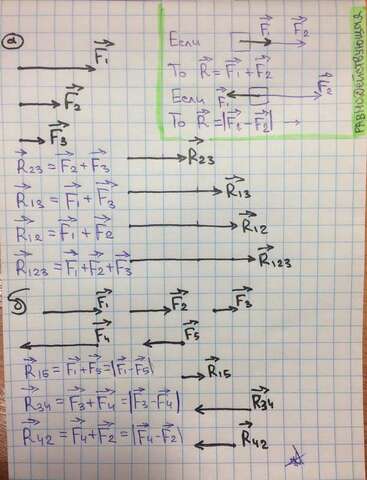 а) F₁
F₂
F₃
Если F₁ F₂
То R = F₁ + F₂
Если F₁ F₂
То R = |F₁ - F₂| →
Равнодействующая
R₂₃ = F₂ + F₃ R₂₃
R₁₃ = F₁ + F₃ R₁₃
R₁₂ = F₁ + F₂ R₁₂
R₁₂₃ = F₁ + F₂ + F₃ R₁₂₃
б) F₁ F₂ F₃
F₄ F₅
R₁₅ = F₁ + F₅ = |F₁ - F₅| R₁₅
R₃₄ = F₃ + F₄ = |F₃ - F₄| R₃₄
R₄₂ = F₄ + F₂ = |F₄ - F₂| R₄₂